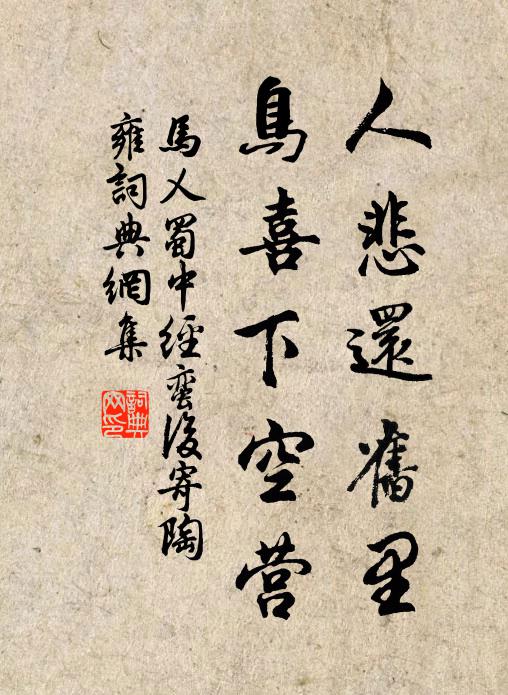 人悲還舊里
鳥喜下空营
馬乂蜀中經蠻後寄陶
雍詞典網集
詞典
网印